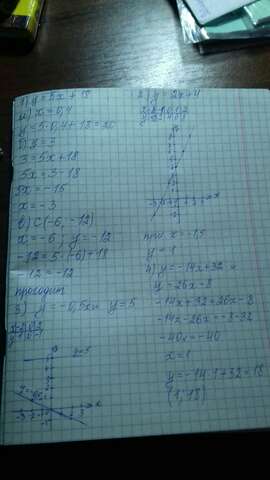 1) y = 5x + 18
а) x = 0,4
y = 5·0,4 + 18 = 20
б) y = 3
3 = 5x + 18
5x = 3 - 18
5x = -15
x = -3
в) C(-6, -12)
x = -6; y = -12
-12 = 5·(-6) + 18
-12 = -12
проходит
3) y = -0,5x и y = 5
y = 5
2) y = 2x + 4
при x = -1,5
y = 1
4) y = -14x + 32 и
y = 26x - 8
-14x + 32 = 26x - 8
-14x - 26x = -8 - 32
-40x = -40
x = 1
y = -14·1 + 32 = 18
(1; 18)